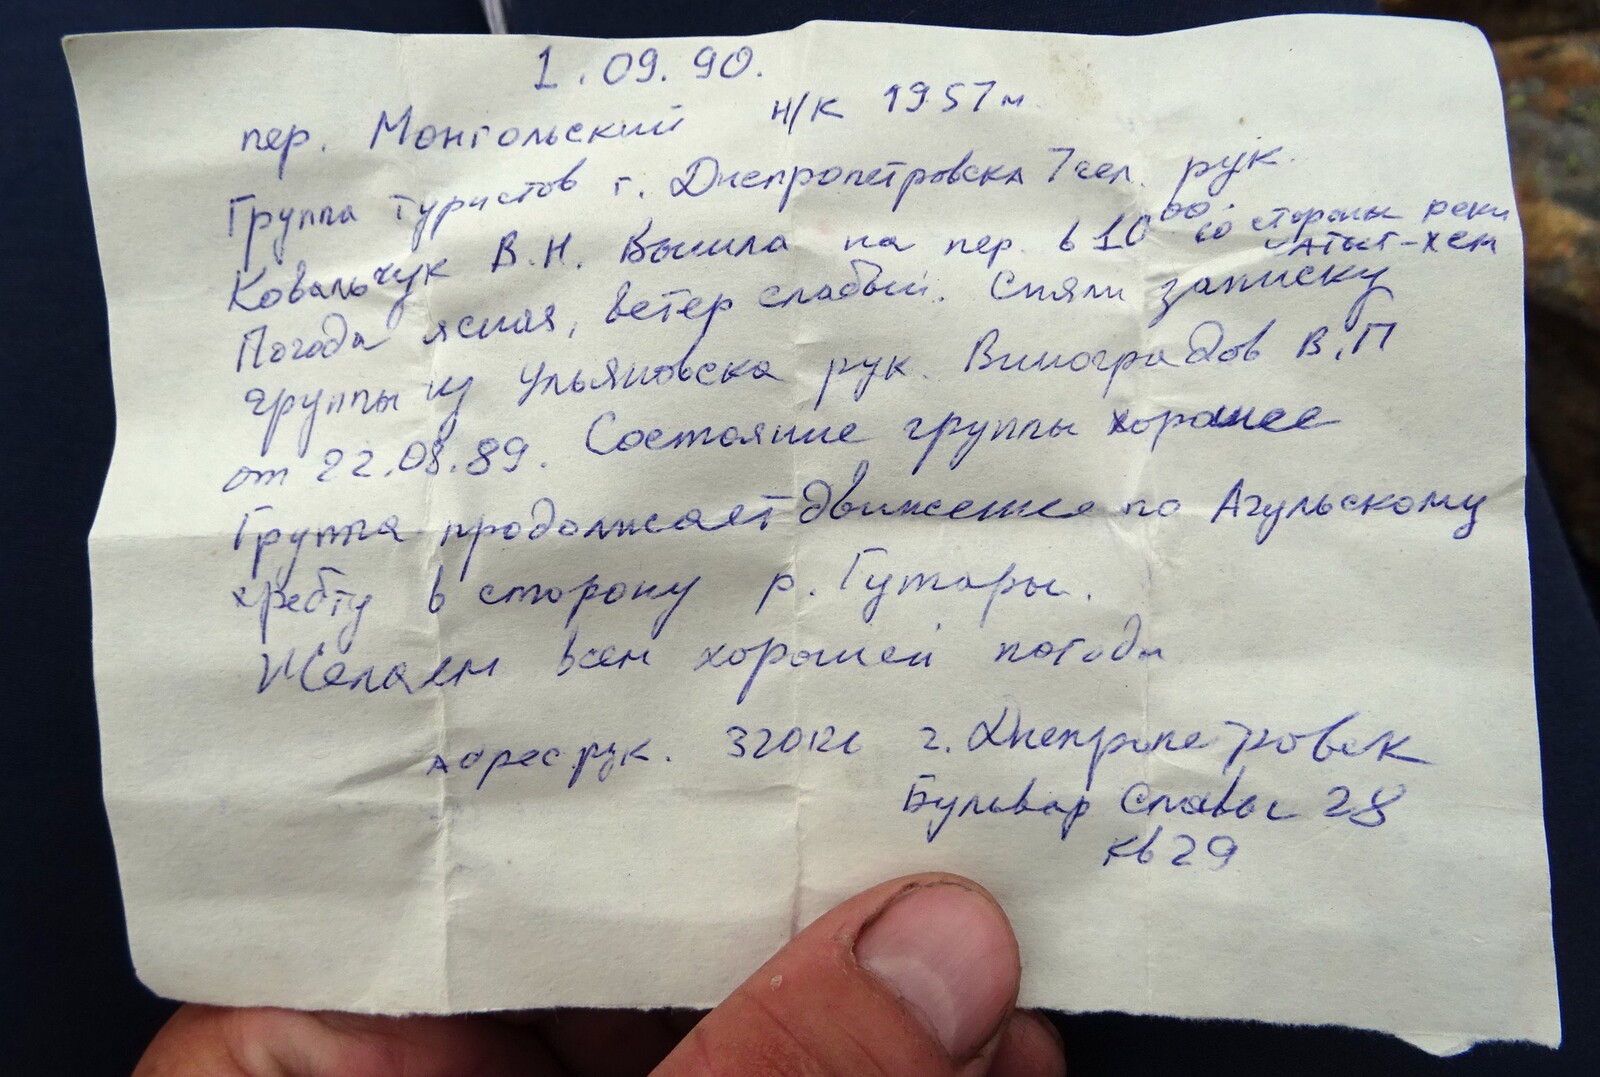 1.09.90.
пер. Монгольский н/к 1957м
Группа туристов г. Днепропетровска 7чел. рук.
Ковальчук В.Н. Вышла на пер. в 10⁰⁰ со стороны реки
Атыг-хем
Погода ясная, ветер слабый. Сняли записку
группы из Ульяновска рук. Виноградов В.П
от 22.08.89. Состояние группы хорошее
Группа продолжает движение по Агульскому
хребту в сторону р. Гутары.
Желаем всем хорошей погоды
Адрес рук. г. Днепропетровск
Бульвар Славы 28
кв 29